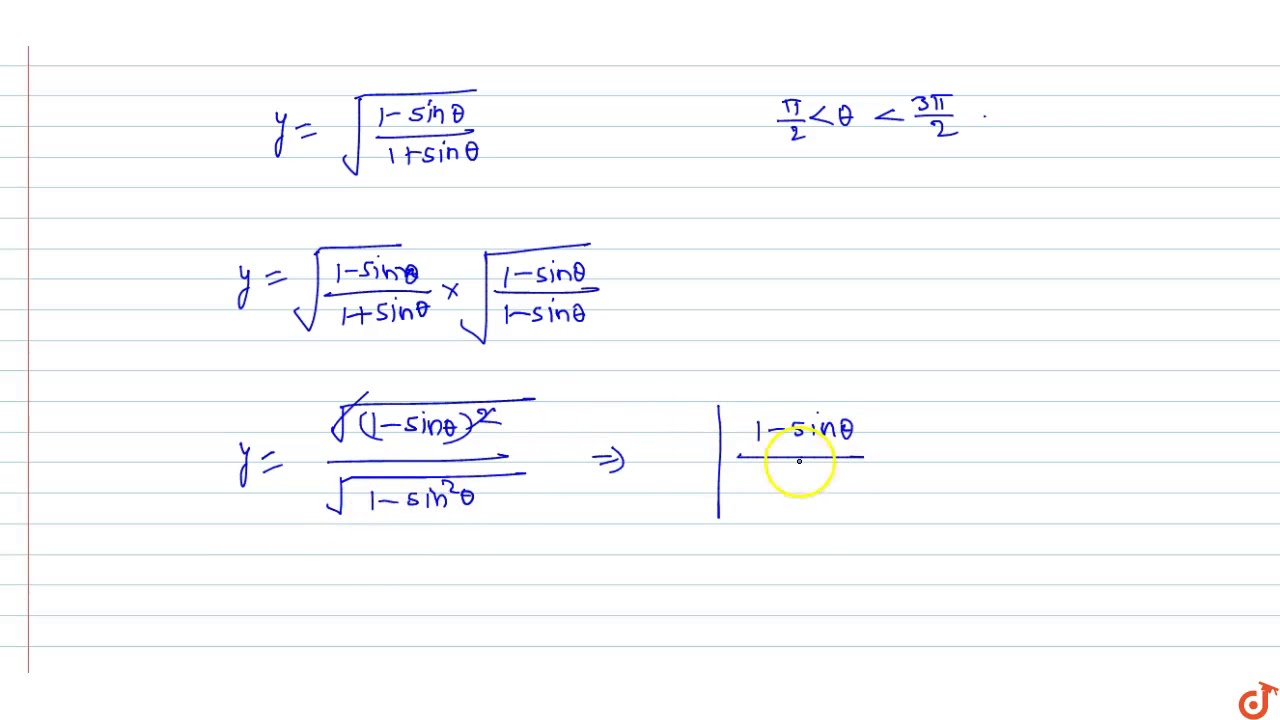 y = √((1 - sinθ)/(1 + sinθ)) π/2 < θ < 3π/2 .
y = √((1 - sinθ)/(1 + sinθ)) × √((1 - sinθ)/(1 - sinθ))
y = √((1 - sinθ)²)/√(1 - sin²θ) ⇒ | 1 - sinθ